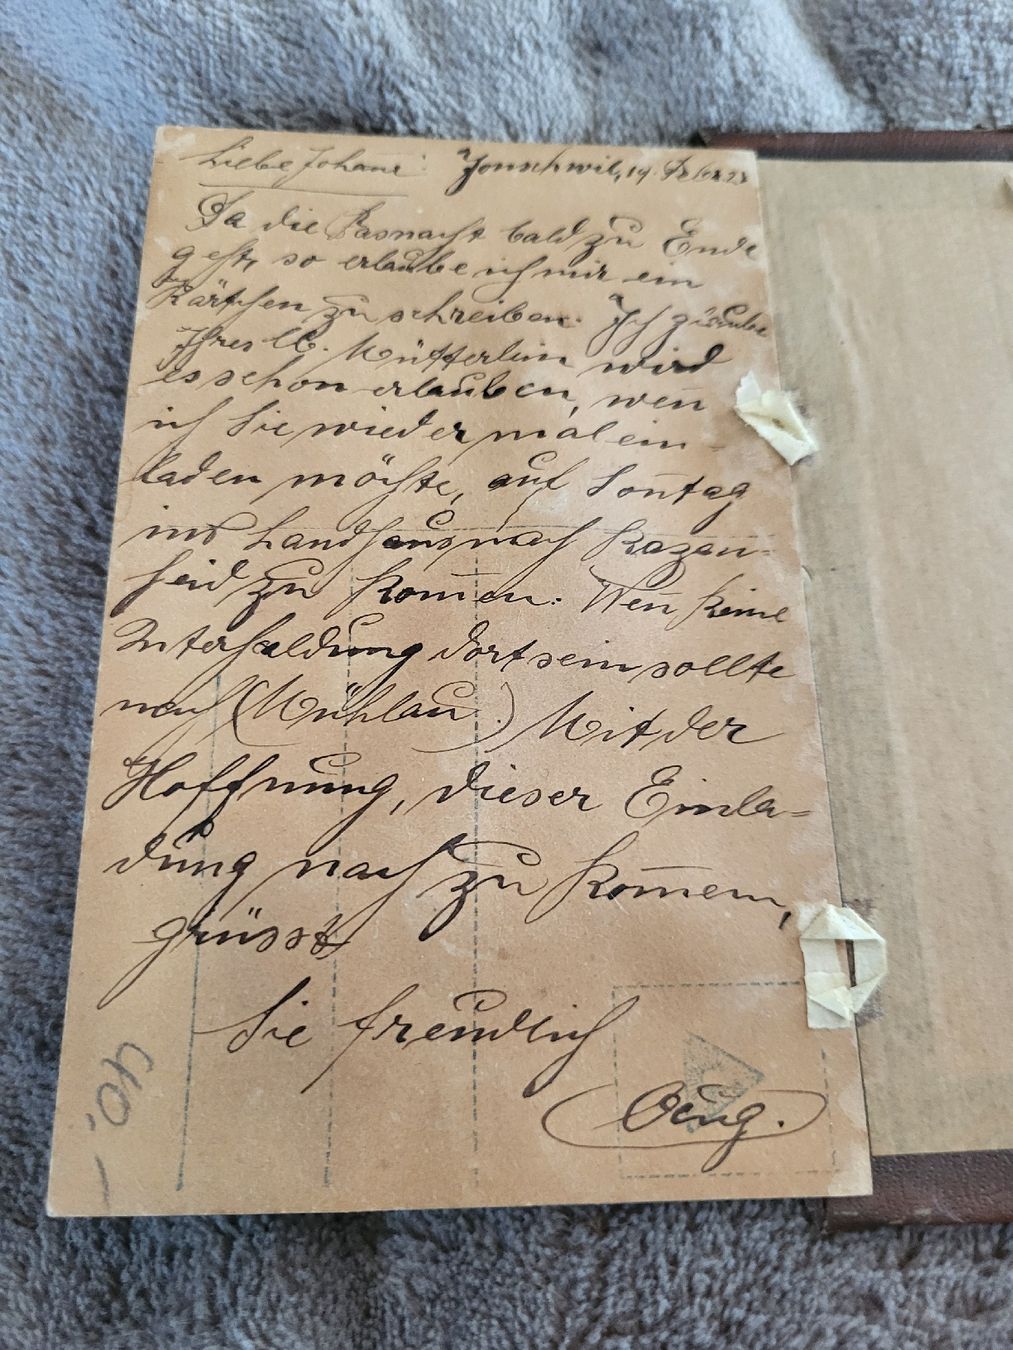 Liebe Johana: Jonschwil, 19. Febr. 23
Da die Fasnacht bald zu Ende
geht, so erlaube ich mir ein
Kärtchen zu schreiben. Ich glaube
Ihres lb. Mütterlein wird
es schon erlauben, weñ
ich Sie wieder mal ein-
laden möchte, auf Soñtag
ins Landhaus nach Bazen-
heid zu kom̄en. Weñ keine
Unterhaldung dort sein sollte
nach (Mühlau.) Mit der
Hoffnung, dieser Einla=
dung nach zu kom̄em,
grüsst
Sie freundlich
Eug.
40.–